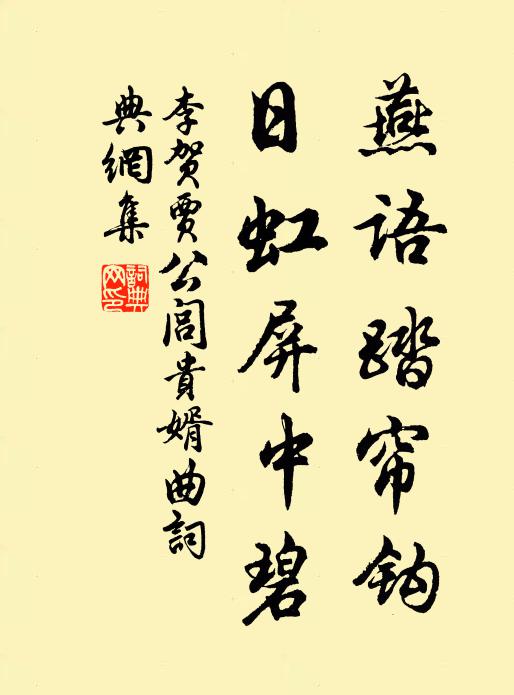 燕语踏帘钩
日虹屏中碧
李贺贾公闾貴婿曲詞
典網集
詞典网印